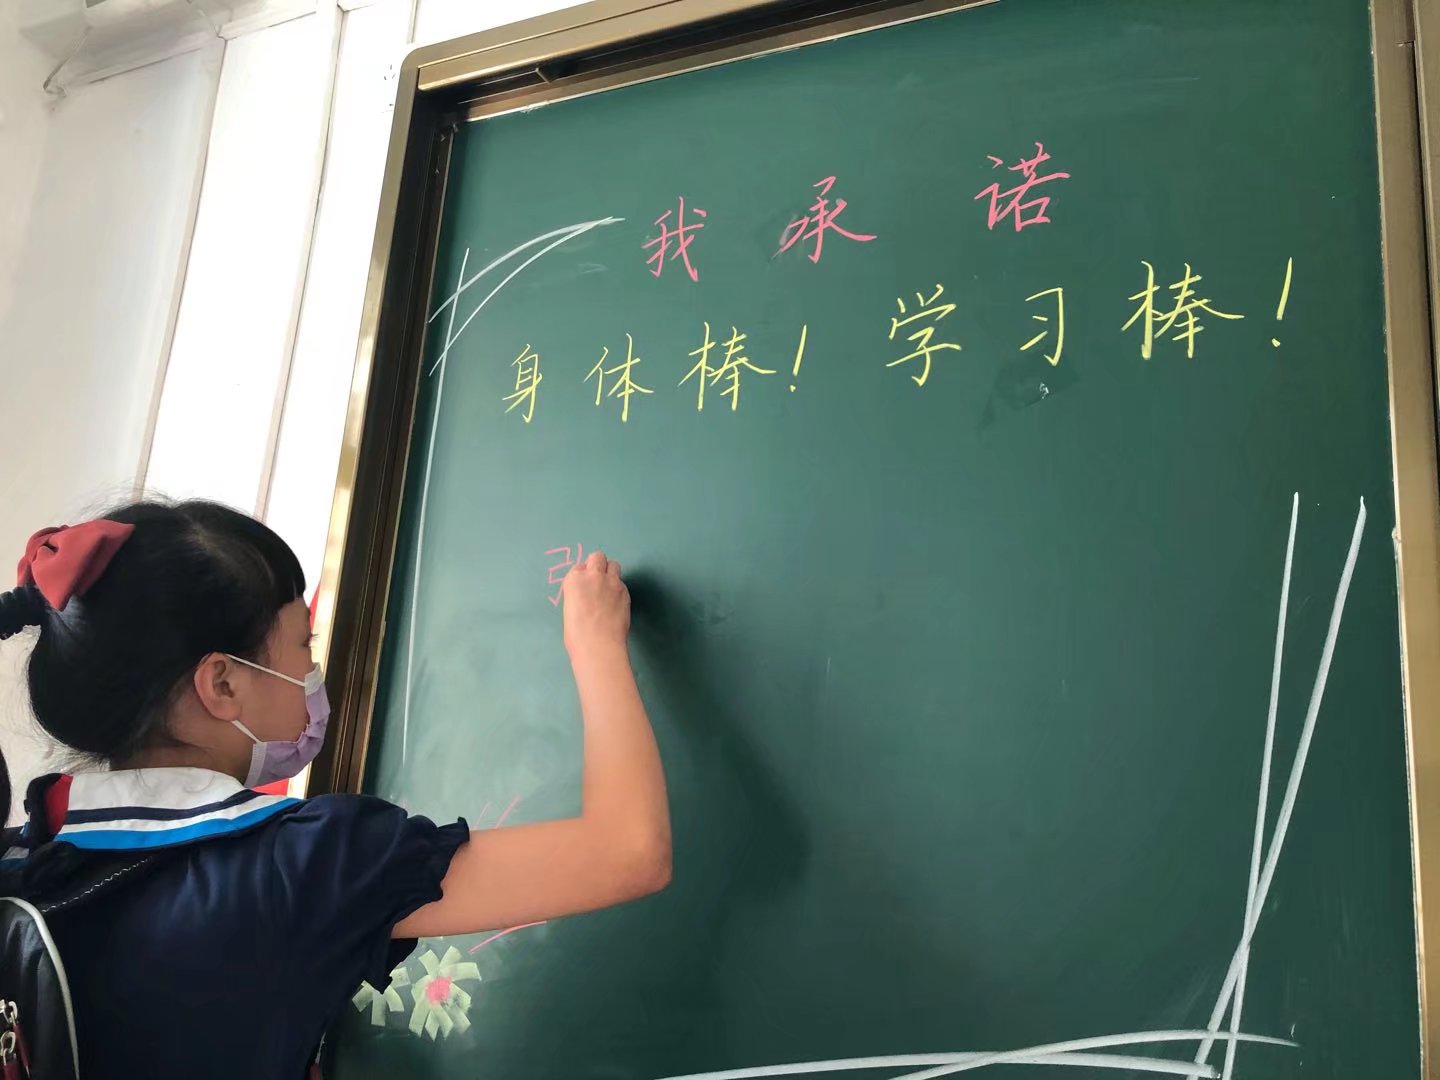 我承诺
身体棒！学习棒！